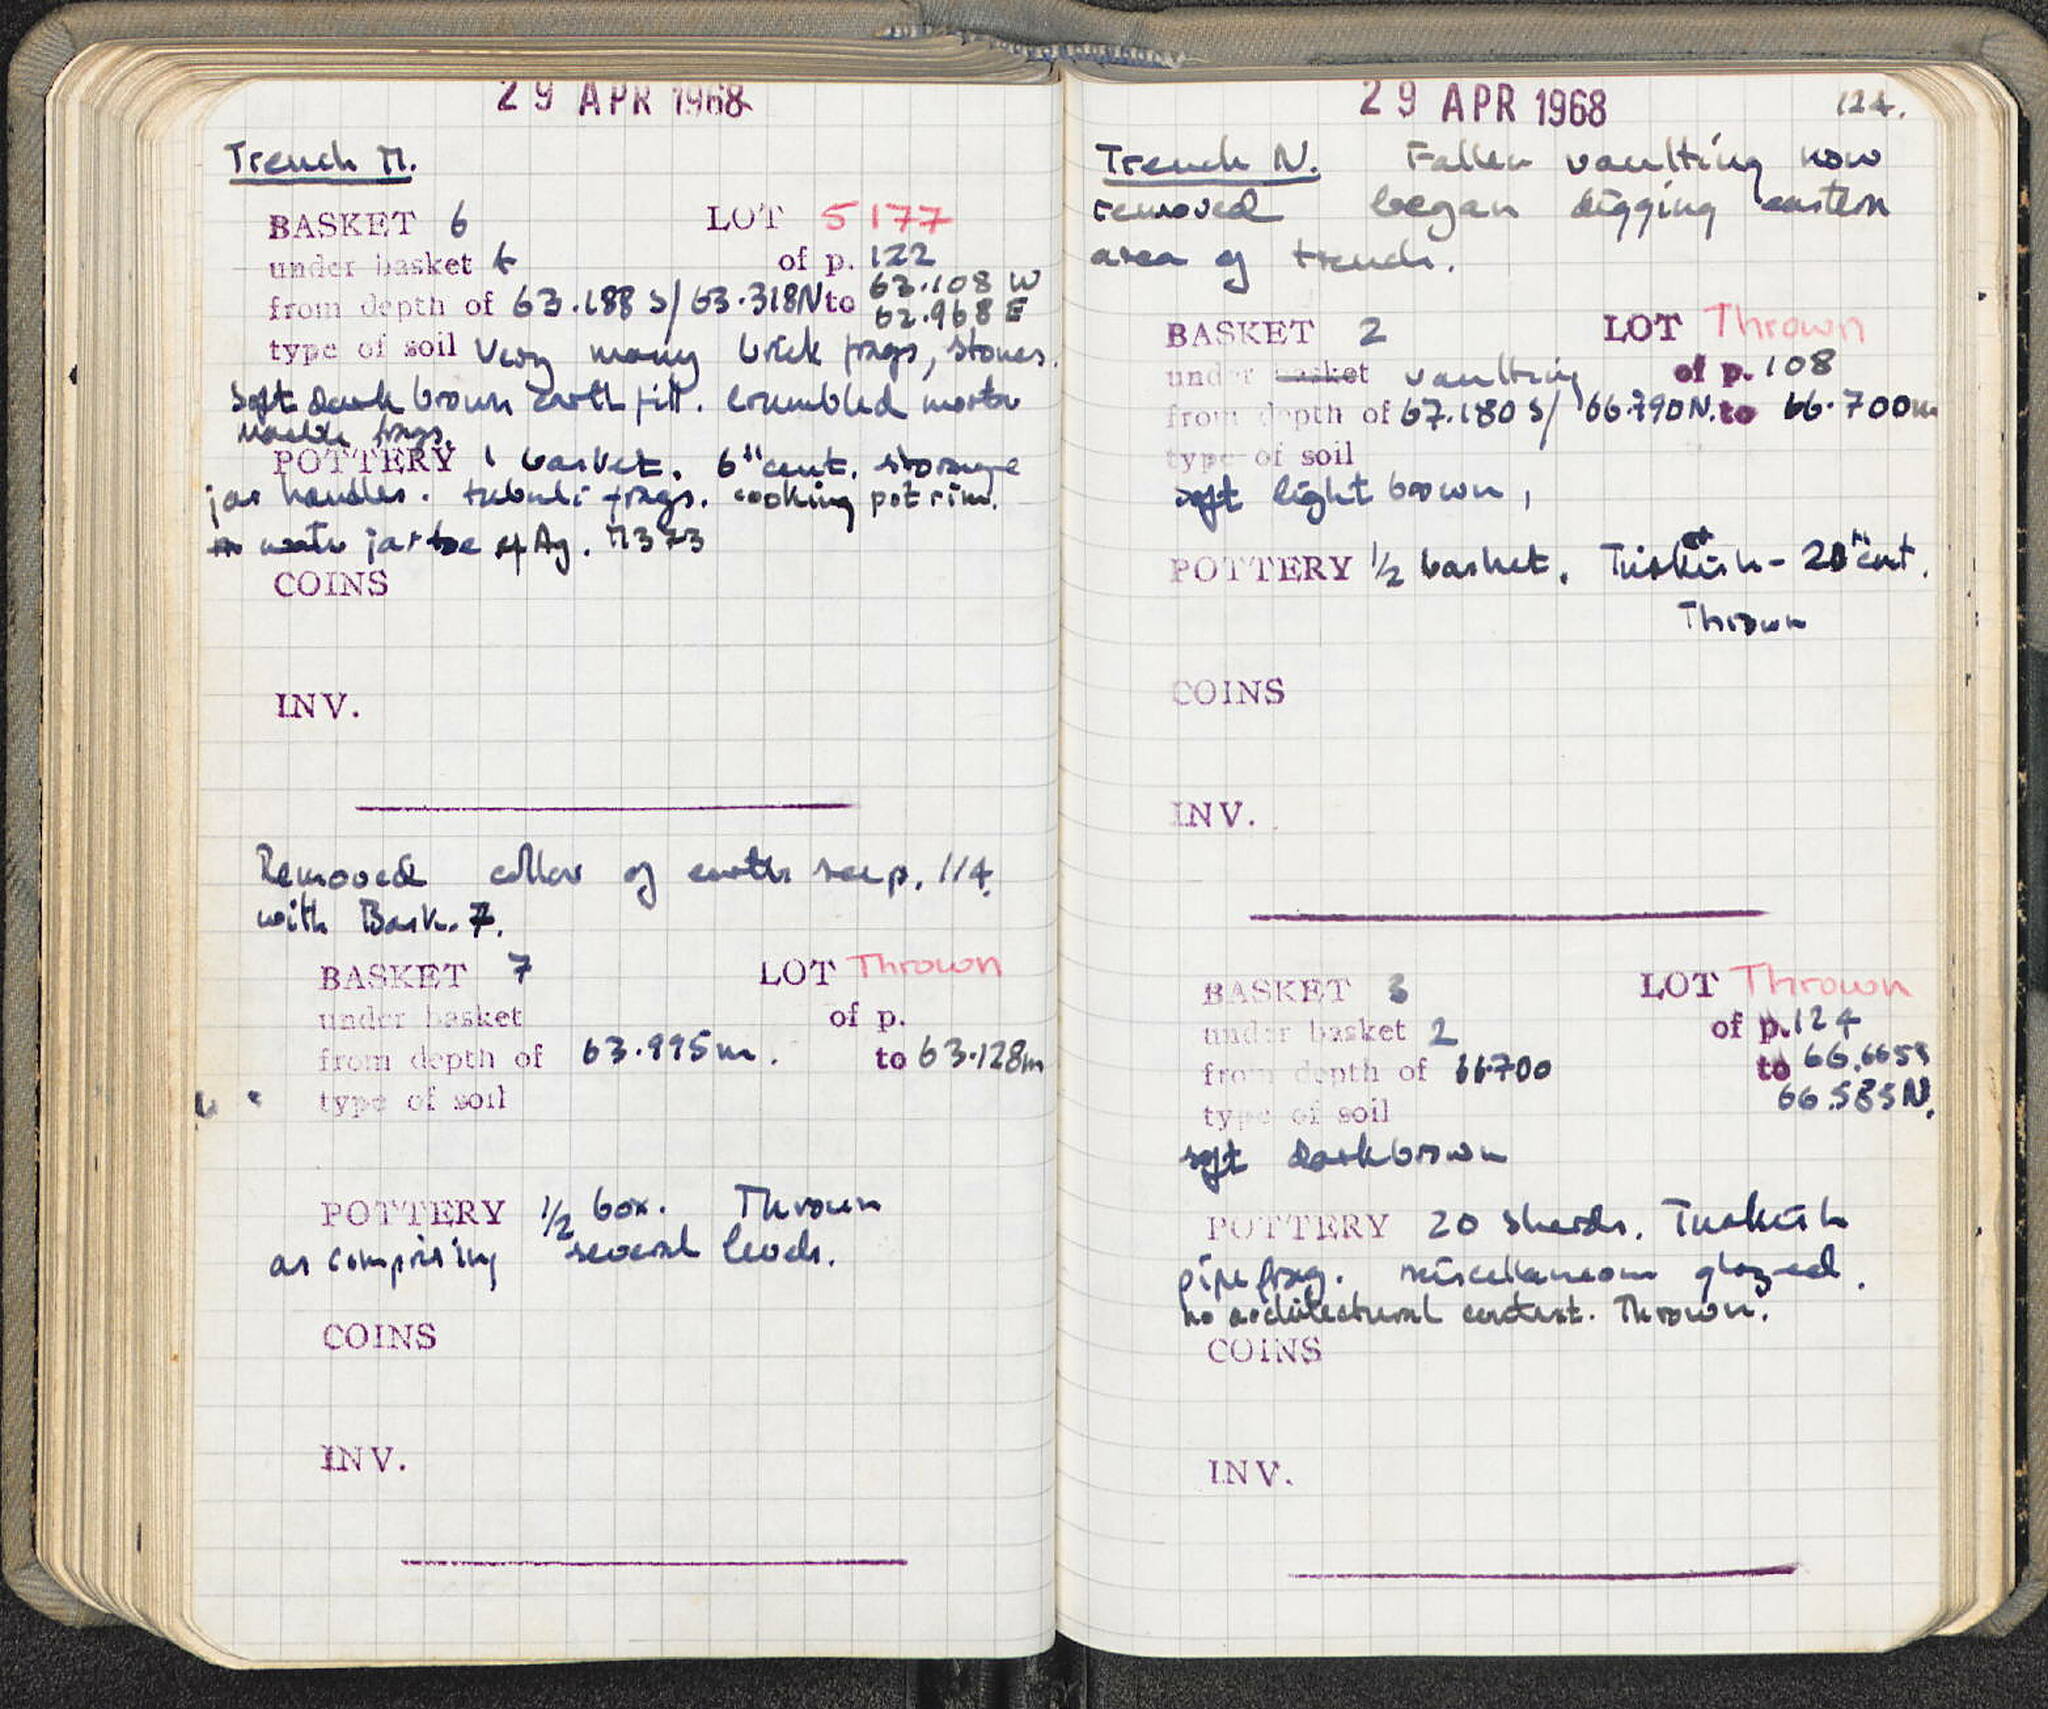 29 APR 1968
Trench M.
BASKET 6 LOT 5177
under basket 4 of p. 122
from depth of 63.188 S/63.318N to 63.108 W
62.968 E
type of soil Very many brick frags, stones.
Soft dark brown earth fill. crumbled mortar
Marble frags.
POTTERY 1 basket. 6th cent. storage
jar handles. tubuli frags. cooking pot rim.
water jar toe of Ag. M373
COINS
INV.
Removed collar of earth see p. 114.
with Bask. 7.
BASKET 7 LOT Thrown
under basket of p.
from depth of 63.995m. to 63.128m
type of soil
POTTERY 1/2 box. Thrown
as comprising several levels.
COINS
INV.
29 APR 1968 124.
Trench N. Fallen vaulting now
removed began digging eastern
area of trench.
BASKET 2 LOT Thrown
under basket vaulting of p. 108
from depth of 67.180 S/ 66.790N. to 66.700m
type of soil
soft light brown,
POTTERY 1/2 basket. Turkish - 20th cent.
Thrown
COINS
INV.
BASKET 3 LOT Thrown
under basket 2 of p. 124
from depth of 66.700 to 66.665S
66.585N.
type of soil
soft dark brown
POTTERY 20 sherds. Turkish
pipe frag. miscellaneous glazed.
no architectural context. Thrown.
COINS
INV.